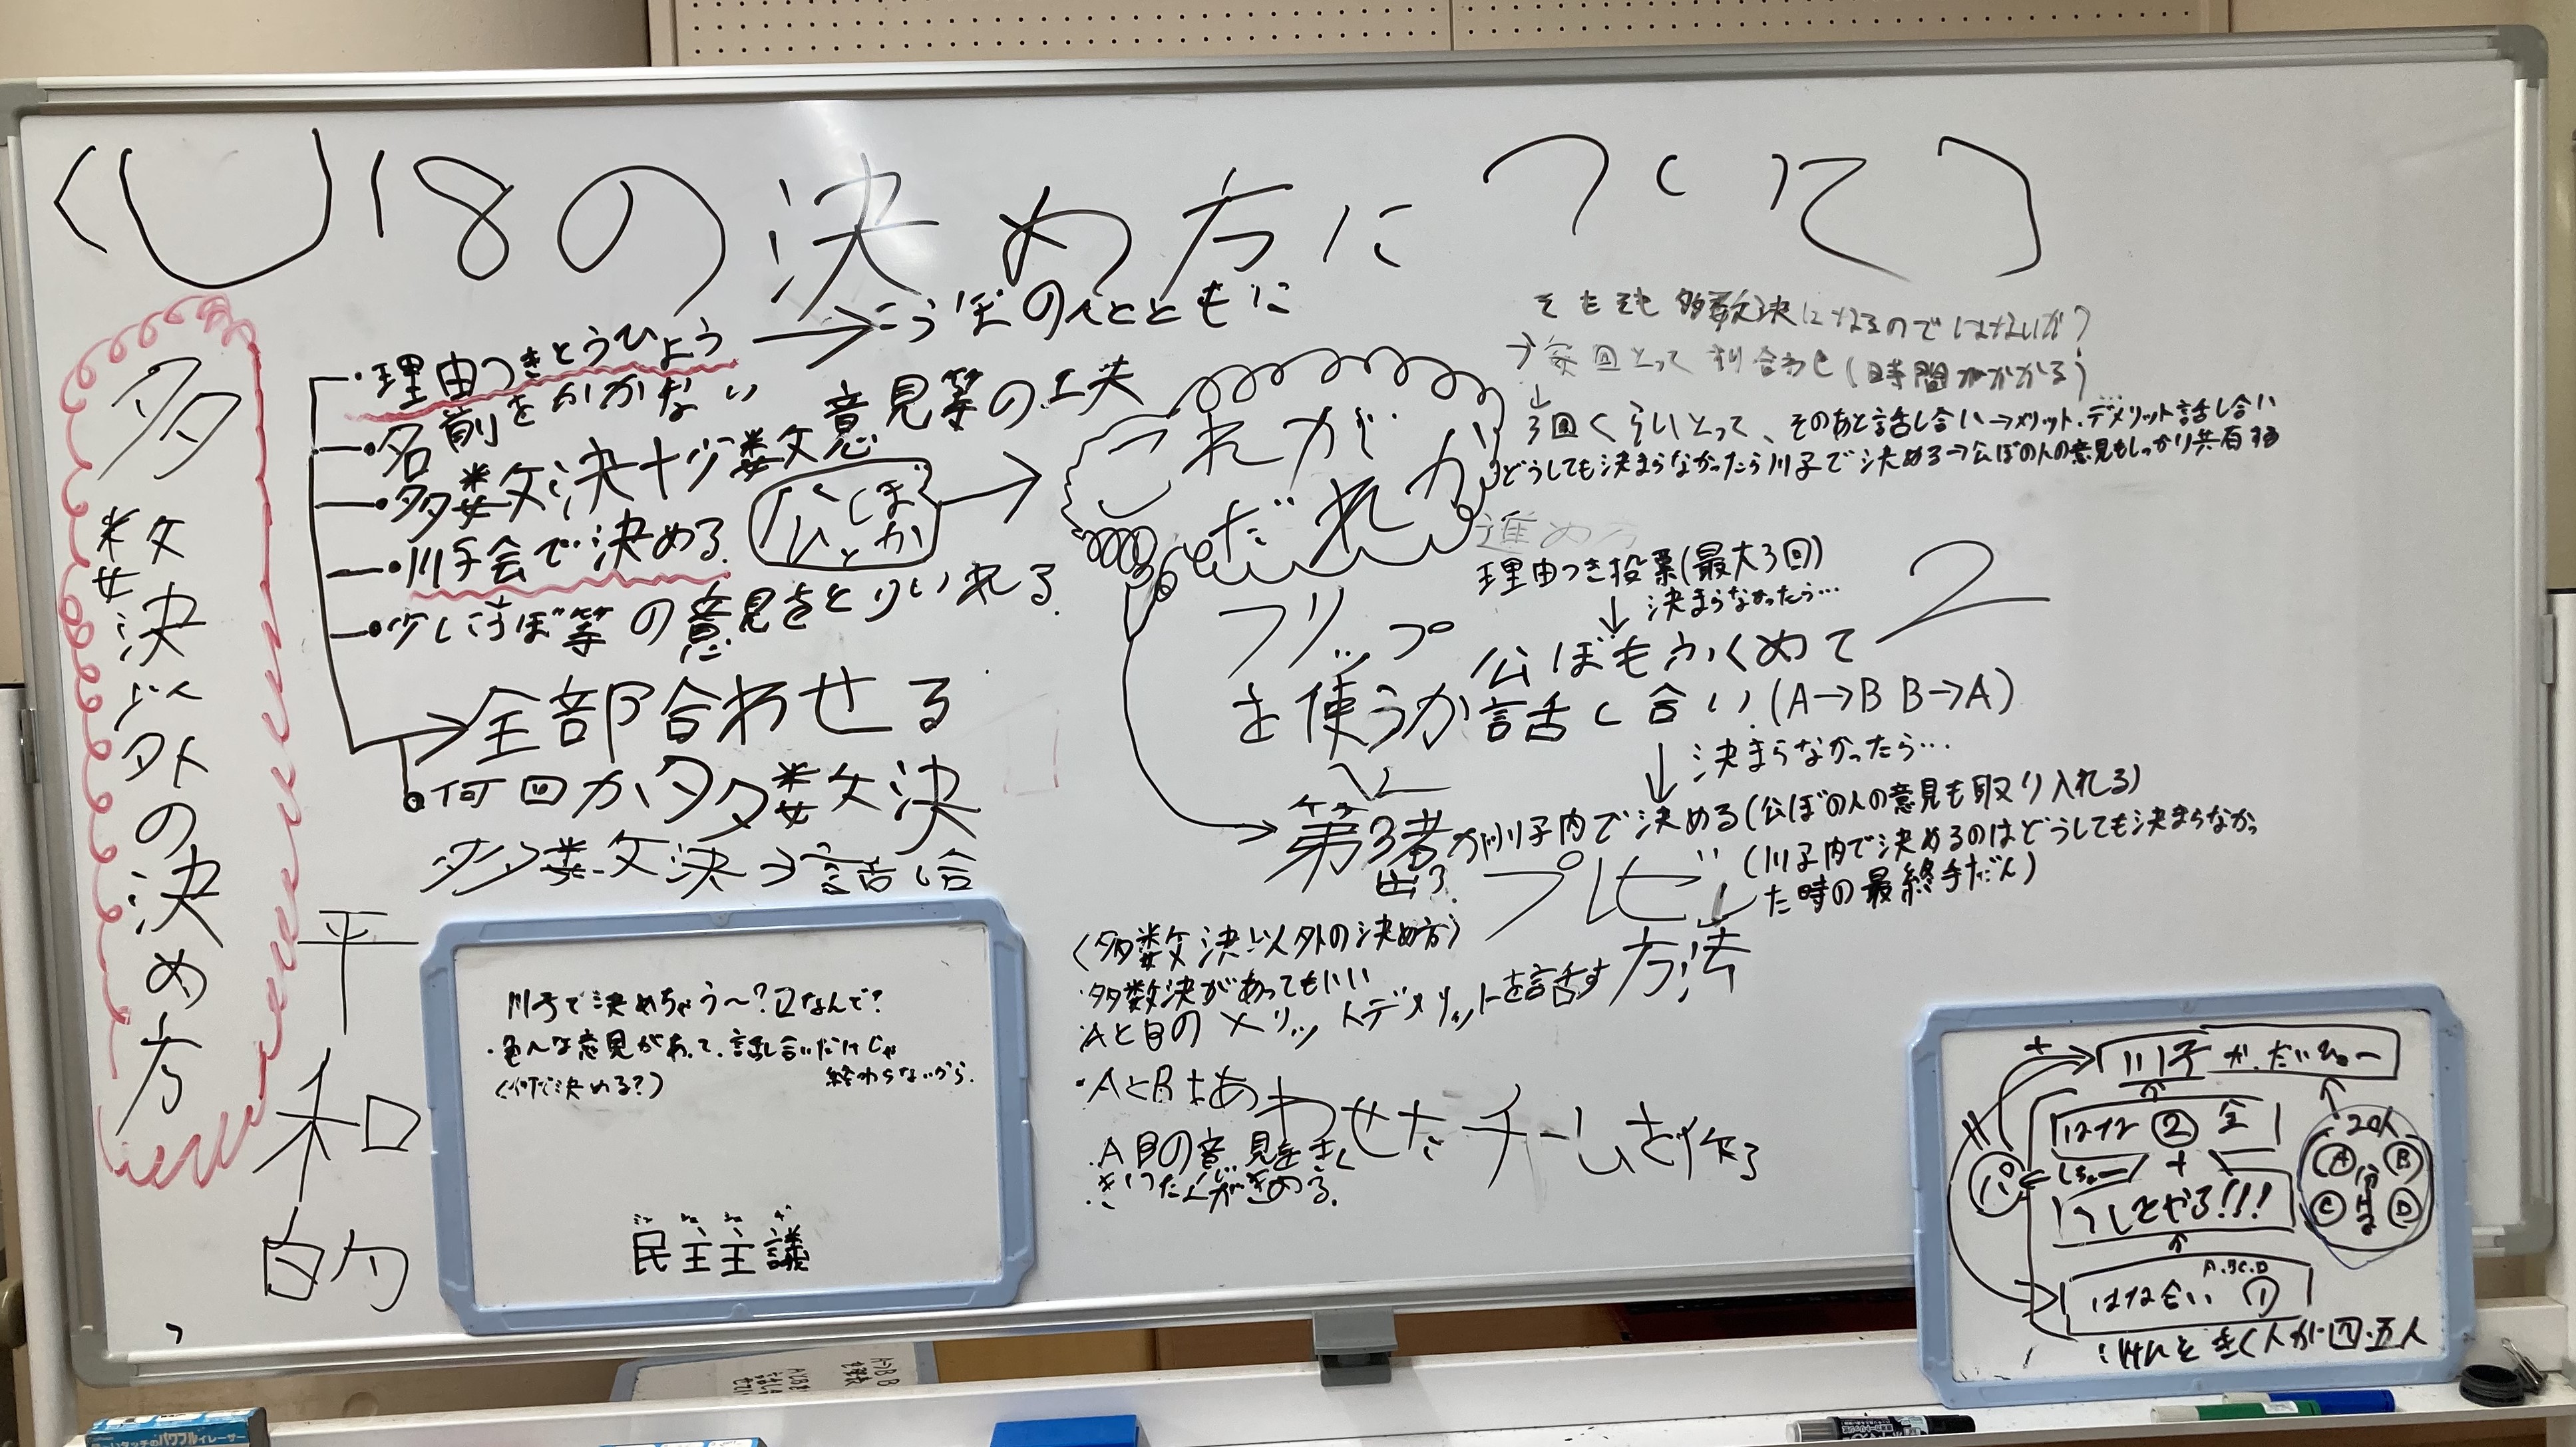 〈U18の決め方について〉
多数決以外の決め方
・理由つきとうひよう→こうぼの人とともに
・名前をかかない
・多数決+少数意見等の工夫
・川子会で決める。
公ぼとか
・少しこうぼ等の意見をとりいれる
に
→全部合わせる
・何回か多数決
多数決→話し合
平和的
これが だれが
フリップを使うか
第3者が出る
そもそも多数決になるのではないか?
→回とって すり合わせ(時間がかかる)
↓
3回くらいとって、そのあと話し合い→メリット.デメリット話し合い
どうしても決まらなかったら川子で決める→公ぼの人の意見もしっかり共有する
進め方
理由つき投票(最大3回)
↓決まらなかったら…
公ぼもふくめて
話し合い.(A→B B→A)
↓決まらなかったら…
川子内で決める(公ぼの人の意見も取り入れる)
(川子内で決めるのはどうしても決まらなかった時の最終手だん)
2
プレゼン方法
〈多数決以外の決め方〉
・多数決があってもいい
・AとBのメリットデメリットを話す
・AとBはあわせたチームを作る
・ABの意見をきく
・きいた人がきめる。
川子で決めちゃう～?なんで?
・色んな意見があって、話し合いだけじゃ終わらないから。
(何で決める?)
民主主義
川子が、
はなし②全
+
してやる!!!
はな合い①
A.B.C.D
20人
A B C D
分ける
けんをきく人が四.五人
パワフルイレーサー